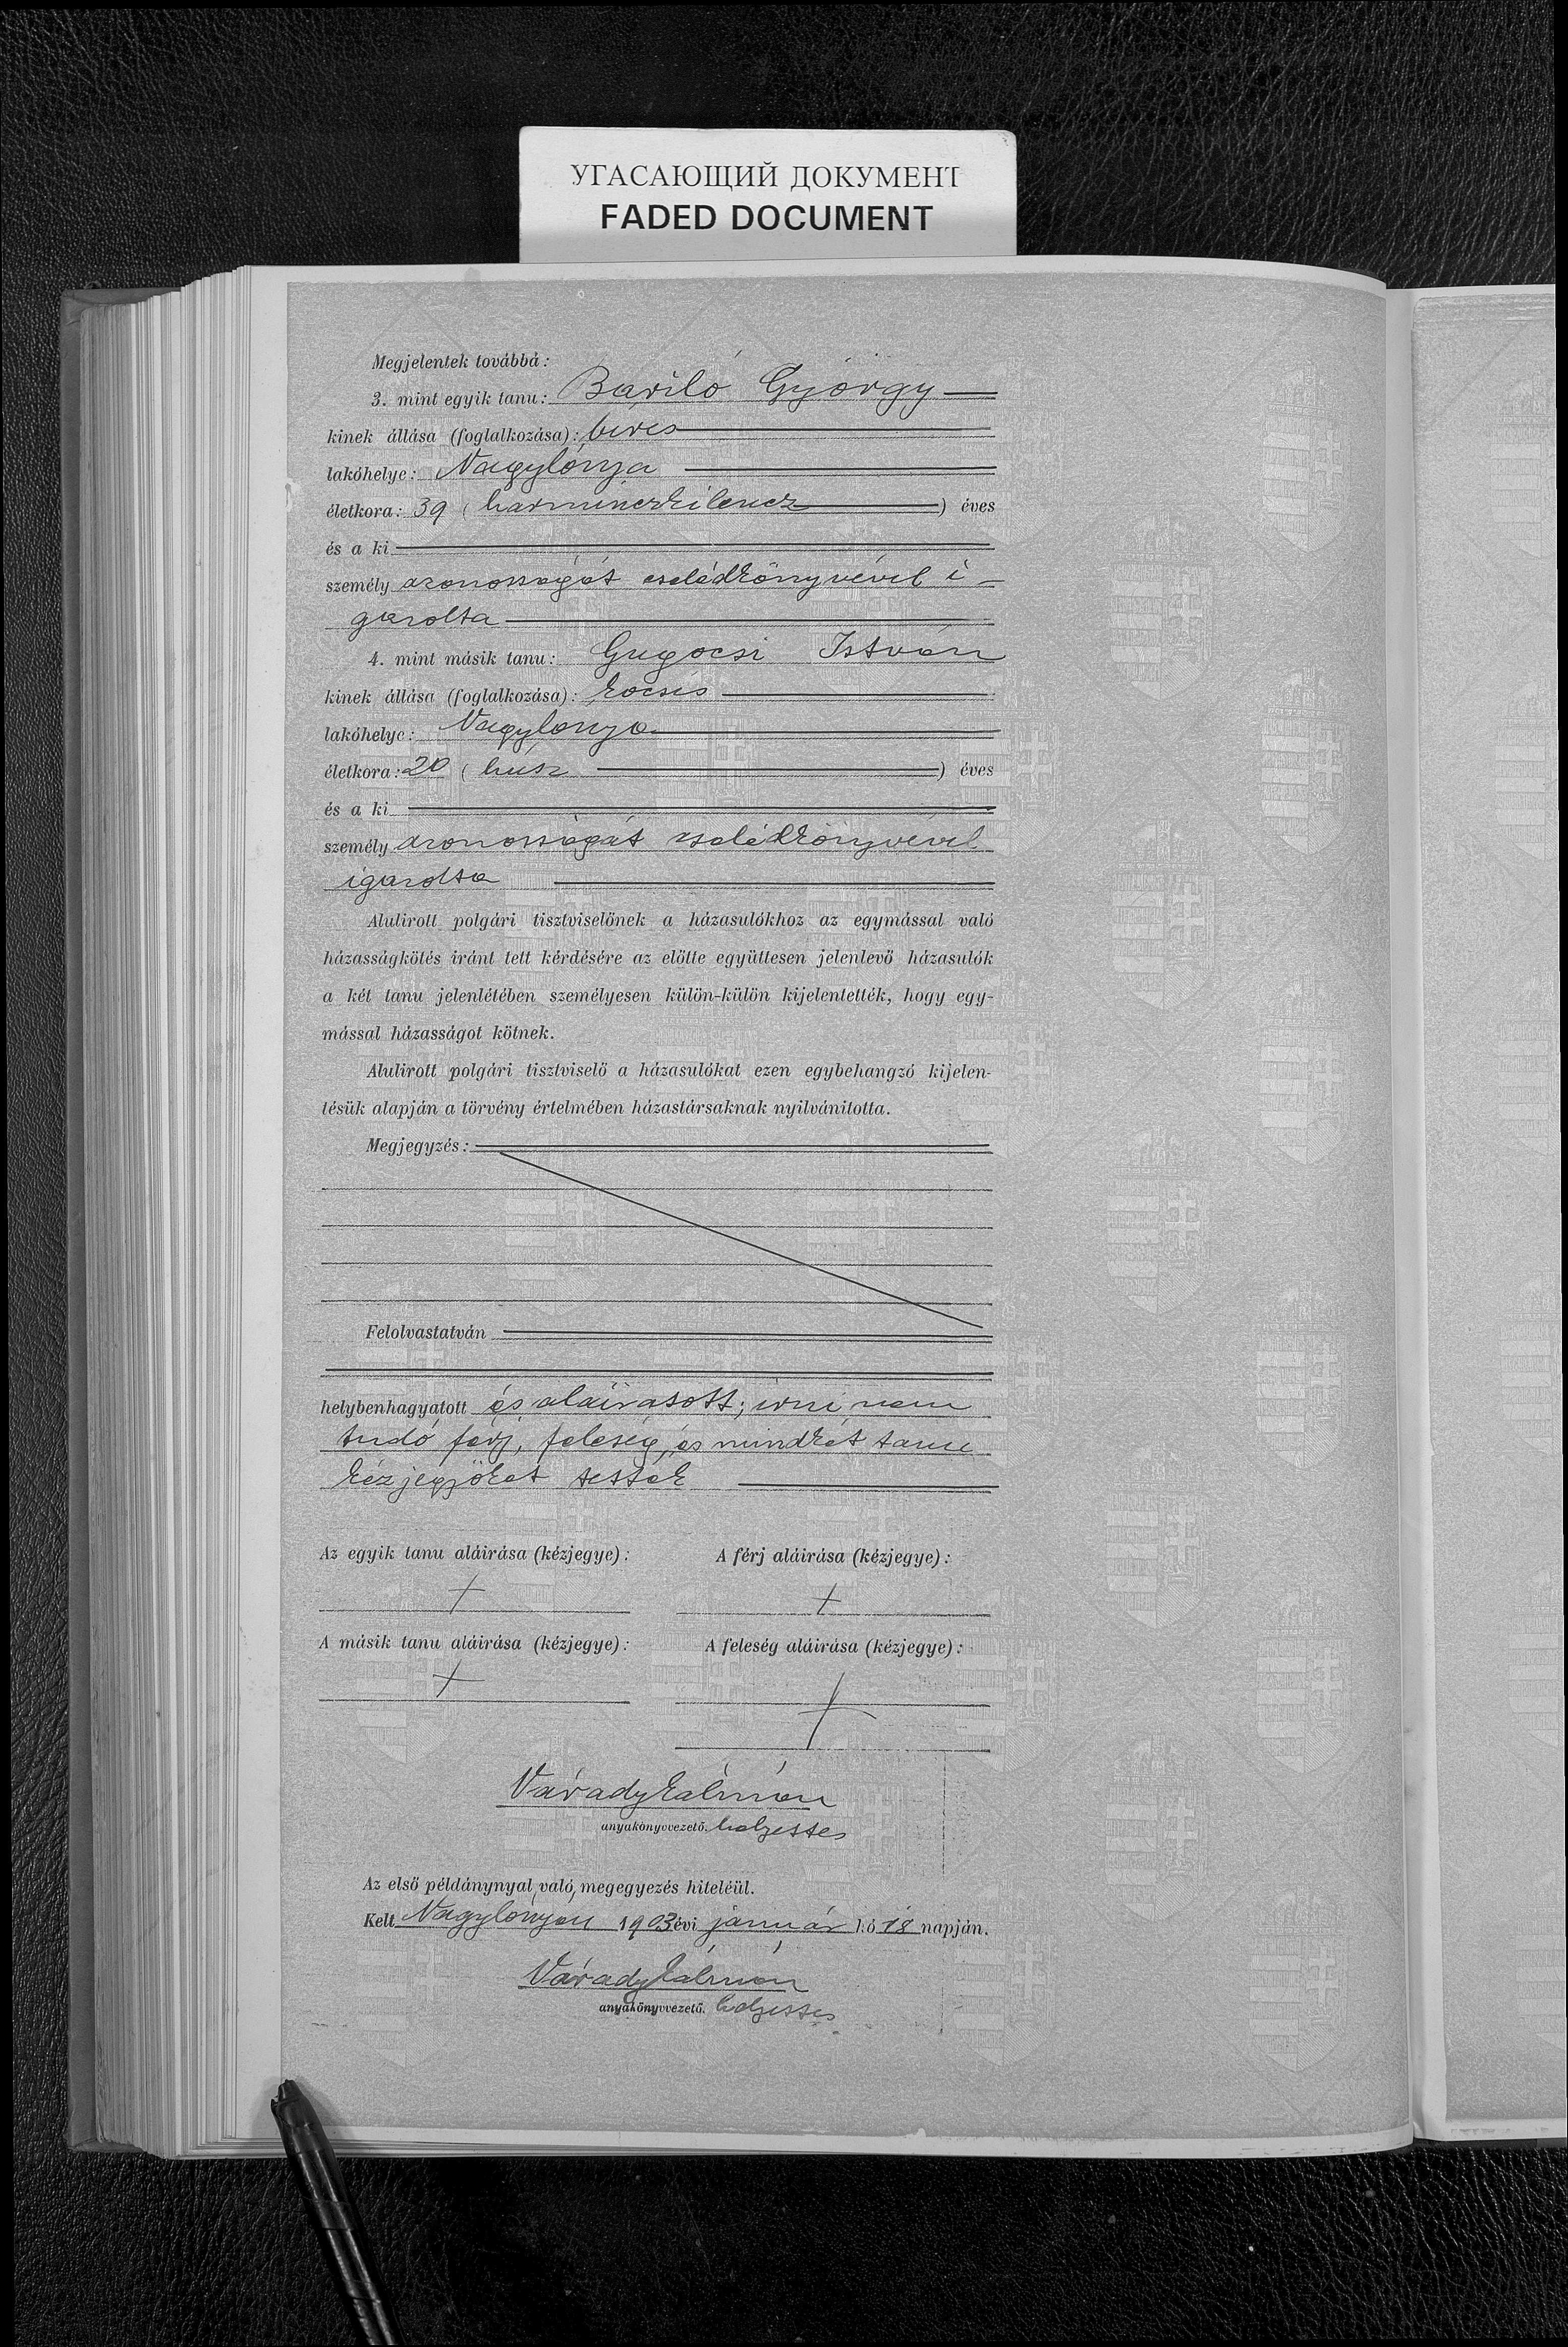 УГАСАЮЩИЙ ДОКУМЕНТ
FADED DOCUMENT
Megjelentek továbbá:
3. mint egyik tanu: Baviló György
kinek állása (foglalkozása): béres
lakóhelye: Nagylónya
életkora: 39 (harminczkilencz) éves
és a ki
személy azonosságát cselédkönyvével i-
gazolta
4. mint másik tanu: Gugocsi István
kinek állása (foglalkozása): kocsis
lakóhelye: Nagylonya
életkora: 20 (húsz) éves
és a ki
személy azonosságát cselédkönyvével
igazolta
Alulirott polgári tisztviselőnek a házasulókhoz az egymással való
házasságkötés iránt tett kérdésére az előtte együttesen jelenlevő házasulók
a két tanu jelenlétében személyesen külön-külön kijelentették, hogy egy-
mással házasságot kötnek.
Alulirott polgári tisztviselő a házasulókat ezen egybehangzó kijelen-
tésük alapján a törvény értelmében házastársaknak nyilvánitotta.
Megjegyzés:
Felolvastatván
helybenhagyatott és aláiratott; irni nem
tudó férj, feleség, és mindkét tanu
kézjegyöket tették
Az egyik tanu aláirása (kézjegye): A férj aláirása (kézjegye):
+ +
A másik tanu aláirása (kézjegye): A feleség aláirása (kézjegye):
+ +
Várady Kálmán
anyakönyvvezető. helyettes
Az első példánynyal való megegyezés hiteléül.
Kelt Nagylónyán 1903 évi január hó 18 napján.
Várady Kálmán
anyakönyvvezető. helyettes